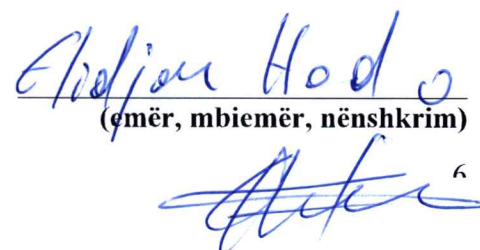 Elidjon Hodo
(emër, mbiemër, nënshkrim)
6